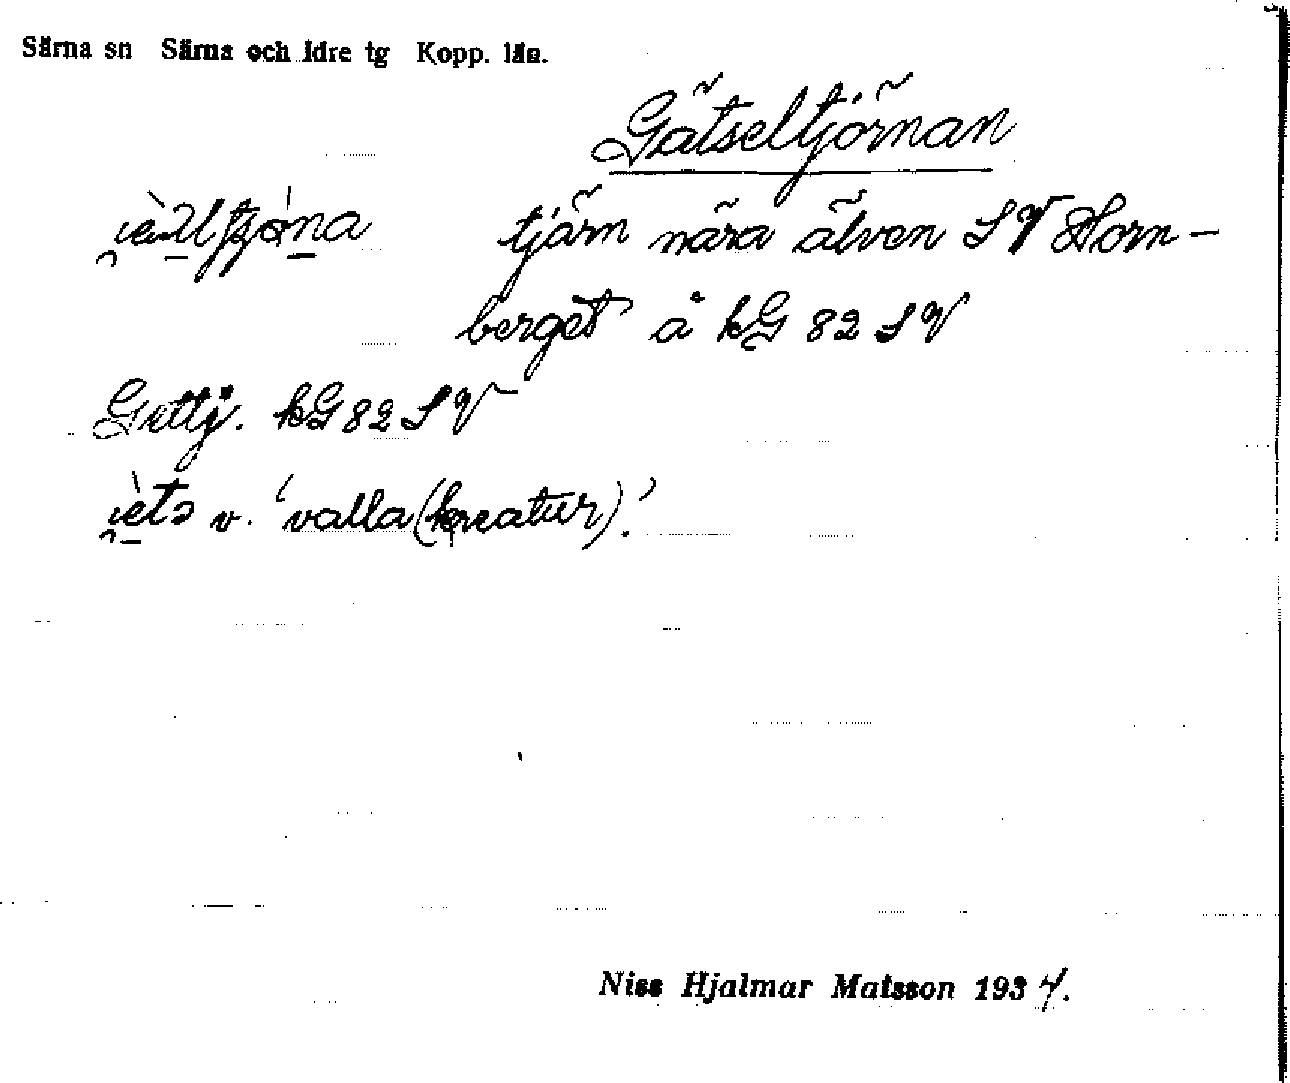 Särna sn Särna och Idre tg Kopp. län.
Gätseltjörnan
tjärn nära älven SV Horn-
berget å kG 82 SV
Gettj. kG 82 SV
v. 'valla (kreatur).'
Niss Hjalmar Matsson 1934.